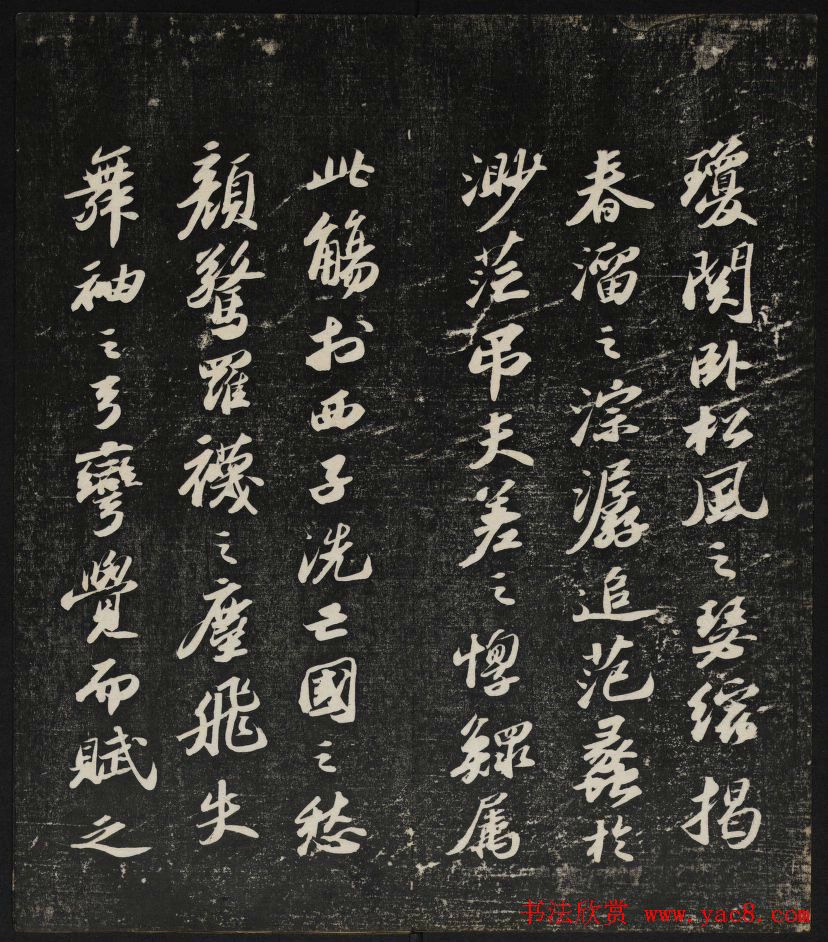 瓊關臥松風之瑟縮揭
春溜之淙潺追范蠡於
渺茫吊夫差之惸鰥属
此觴於西子洗亡國之愁
顏驚羅襪之塵飛失
舞袖之弓彎覺而賦之
书法欣赏 www.yac8.com